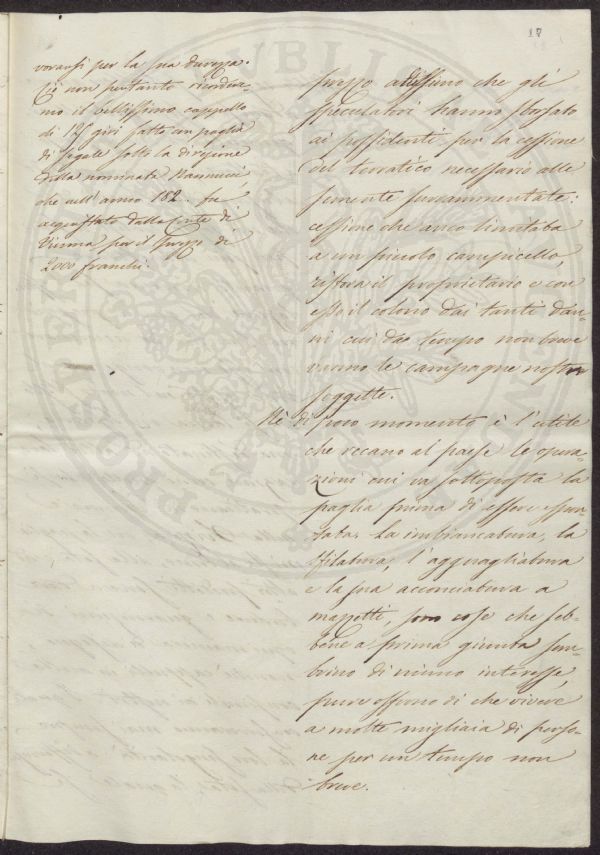 17
vorarsi per la sua durezza.
Ciò non pertanto ricordia-
mo il bellissimo cappello
di 125 giri fatto con paglia
di segale sotto la direzione
della nominata Nannucci
che nell'anno 182. fu
acquistato dalla Corte di
Vienna per il prezzo di
2000 franchi.
prezzo altissimo che gli
speculatori hanno sborsato
ai possidenti per la cessione
del terratico necessario alle
semente surrammentate:
cessione che anco limitata
a un piccolo campicello,
ristora il proprietario e con
esso il colono dai tanti dan-
ni cui da tempo non breve
vanno le campagne nostre
soggette.
Nè di poco momento è l'utile
che recano al paese le opera-
zioni cui va sottoposta la
paglia prima di essere espor-
tata. La imbiancatura, la
sfilatura, l'agguagliatura
e la sua acconciatura a
mazzetti, sono cose che seb-
bene a prima giunta sem-
brino di niuno interesse,
pure offrono di che vivere
a molte migliaia di perso-
ne per un tempo non
breve.
PROSPERITÀ
PUBLI